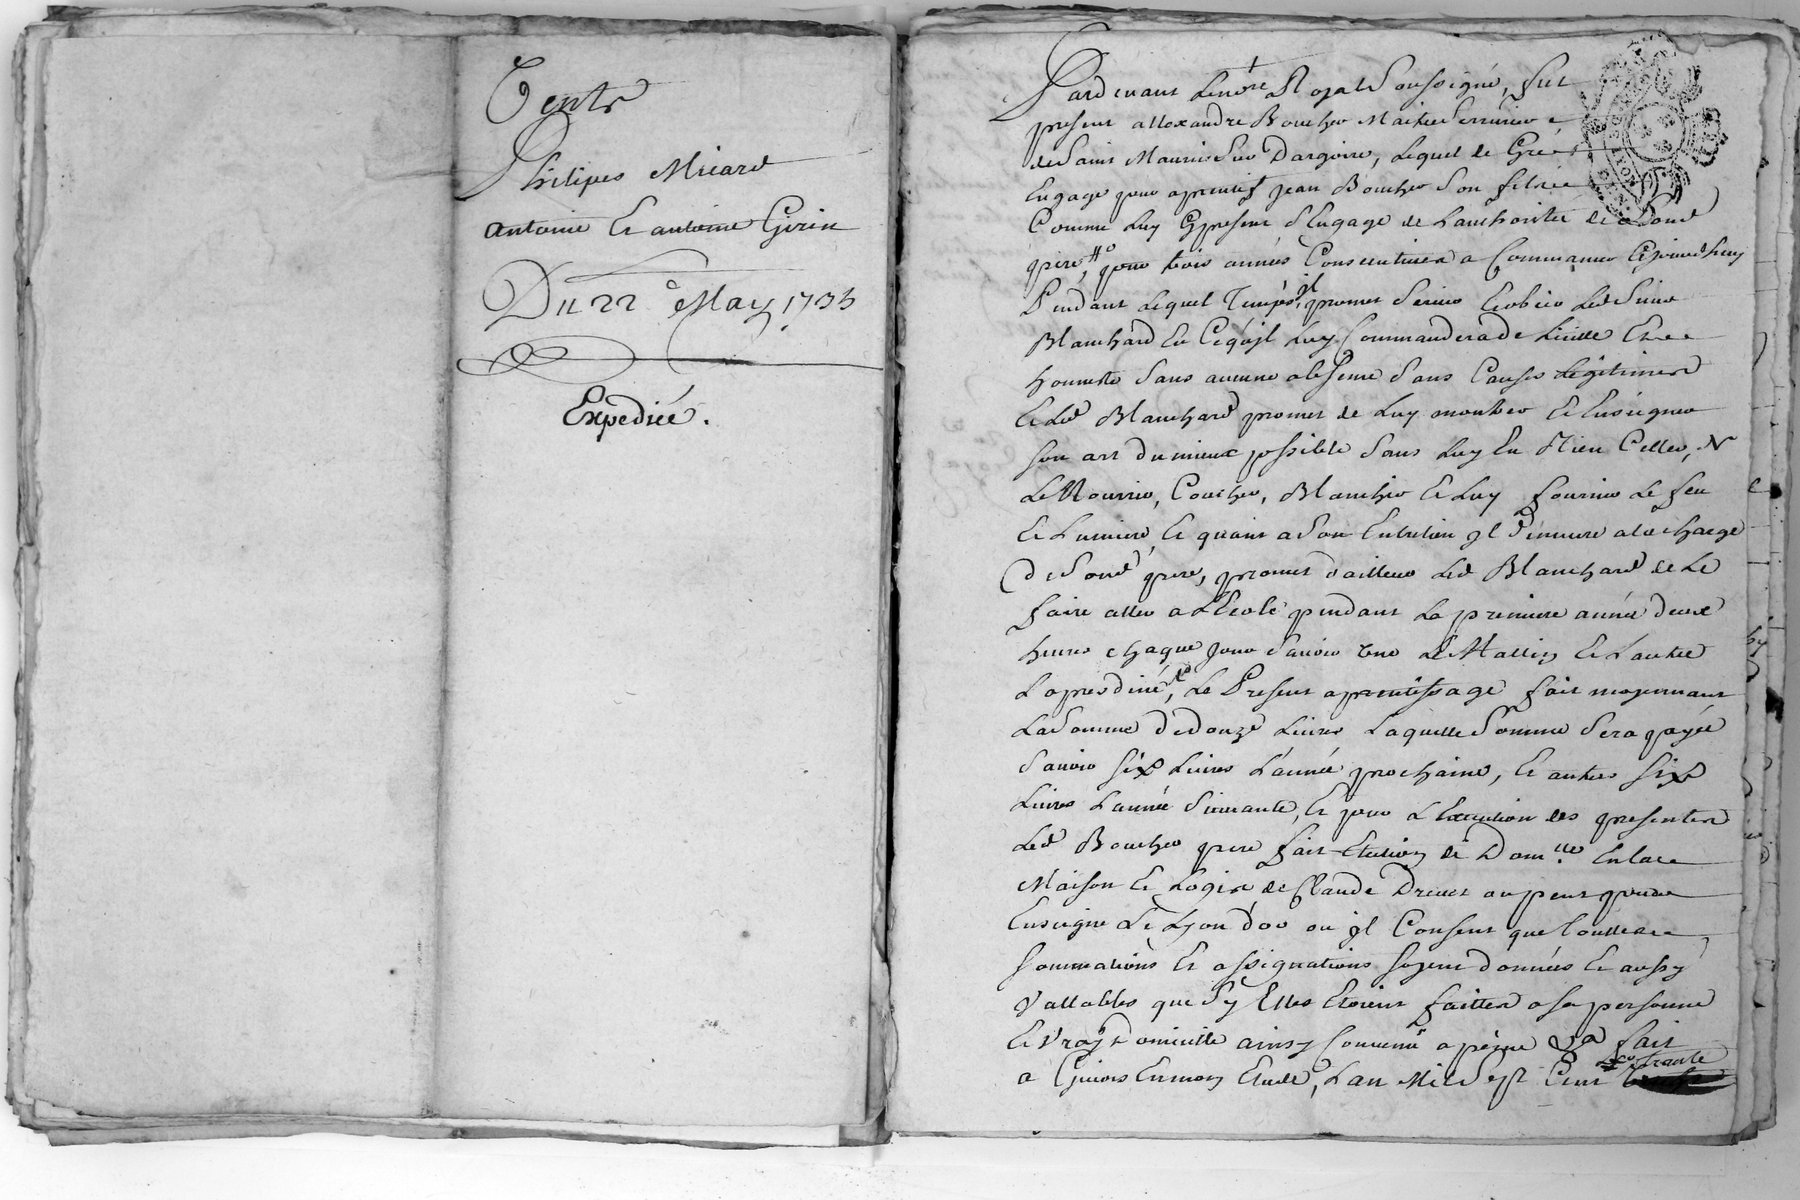 Vente
Philipes Micard
antoine Et antoine Girin
Du 22e May 1735
Expediée.
Pardevant Lenore Royal Soussigné, fut
present allexandre Boucher Maitre Serrurier
de Saint Maurice Sur Dargoire, Lequel de Gré
Engage pour aprentif jean Boucher Son fils
Comme Luy Cy present S'Engage de Lauthorité de Sond
pere, pour trois années Consecutives a Commancer Cejourdhuy
Pendant Lequel Temps, jl promet Servir Et obeir Led Sieur
Blanchard En Ce qu'jl Luy Commandera de Licitte Et
honneste Sans aucune absence Sans Cause Legitimes
Et Led Blanchard promet de Luy montrer Et Enseigner
son art du mieux possible Sans Luy En Rien Celler,
Le Nourrir, Coucher, Blanchir Et Luy fournir Le feu
Et Lumiere, Et quant a Son Entretien jl demeure a la Charge
de Sond pere, promet d'ailleurs Led Blanchard de Le
faire aller a L'Ecole pendant La premiere année deux
heures chaque jour Savoir une Le Mattin Et Lautre
L'apresdiné, Le Present aprentissage fait moyennant
La Somme de douze Livres Laquelle Somme Sera payée
Savoir six Livres L'année prochaine, Et autres six
Livres L'année Suivante, Et pour L'Execution des presentes
Led Boucher pere fait Election de Dom.lle En la
Maison Et Logis de Claude Drevet ou peut pendre
Enseigne Le Lyon d'or ou jl Consent que touttes
sommations Et assignations soyent données Et aussy
Vallables que Sy Elles Etoient faittes a sa personne
Et Vray domicille ainsy Convenu a peine &a fait
a Givors En mon Etude, L'an Mil Sept Cent trante